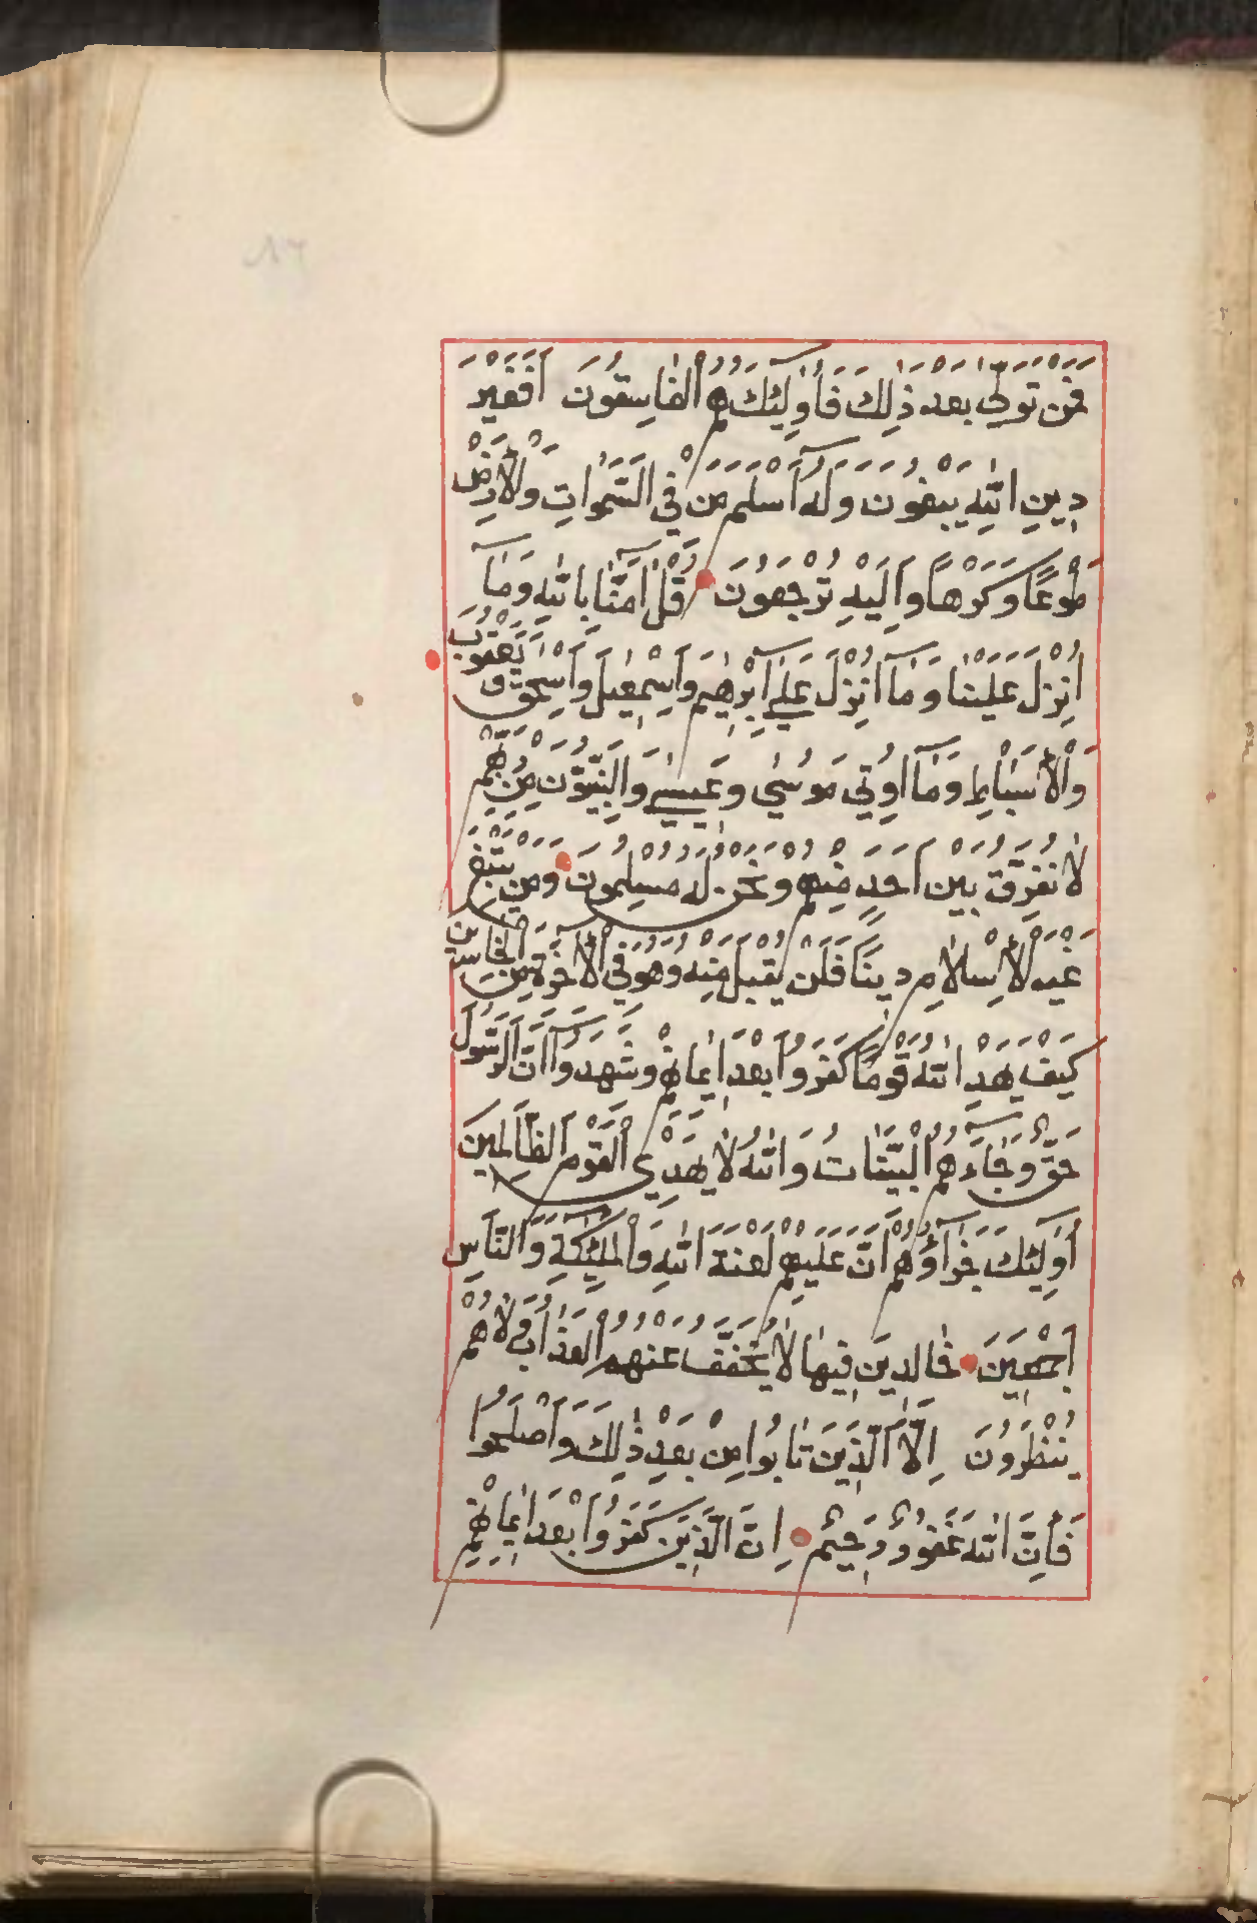 فَمَنْ تَوَلّٰى بَعْدَ ذٰلِكَ فَاُولٰٓئِكَ هُمُ الْفَاسِقُونَ اَفَغَيْرَ
دِينِ اللّٰهِ يَبْغُونَ وَلَهُٓ اَسْلَمَ مَنْ فِي السَّمٰوَاتِ وَالْاَرْضِ
طَوْعًا وَكَرْهًا وَاِلَيْهِ تُرْجَعُونَ قُلْ اٰمَنَّا بِاللّٰهِ وَمَٓا
اُنْزِلَ عَلَيْنَا وَمَٓا اُنْزِلَ عَلٰٓى اِبْرٰهِيمَ وَاِسْمٰعِيلَ وَاِسْحٰقَ وَيَعْقُوبَ
وَالْاَسْبَاطِ وَمَٓا اُوتِيَ مُوسٰى وَعِيسٰى وَالنَّبِيُّونَ مِنْ رَبِّهِمْ
لَا نُفَرِّقُ بَيْنَ اَحَدٍ مِنْهُمْ وَنَحْنُ لَهُ مُسْلِمُونَ وَمَنْ يَبْتَغِ
غَيْرَ الْاِسْلَامِ دِينًا فَلَنْ يُقْبَلَ مِنْهُ وَهُوَ فِي الْاٰخِرَةِ مِنَ الْخَاسِرِينَ
كَيْفَ يَهْدِي اللّٰهُ قَوْمًا كَفَرُوا بَعْدَ اِيمَانِهِمْ وَشَهِدُٓوا اَنَّ الرَّسُولَ
حَقٌّ وَجَٓاءَهُمُ الْبَيِّنَاتُ وَاللّٰهُ لَا يَهْدِي الْقَوْمَ الظَّالِمِينَ
اُولٰٓئِكَ جَزَٓاؤُهُمْ اَنَّ عَلَيْهِمْ لَعْنَةَ اللّٰهِ وَالْمَلٰٓئِكَةِ وَالنَّاسِ
اَجْمَعِينَ خَالِدِينَ فِيهَا لَا يُخَفَّفُ عَنْهُمُ الْعَذَابُ وَلَا هُمْ
يُنْظَرُونَ اِلَّا الَّذِينَ تَابُوا مِنْ بَعْدِ ذٰلِكَ وَاَصْلَحُوا
فَاِنَّ اللّٰهَ غَفُورٌ رَحِيمٌ اِنَّ الَّذِينَ كَفَرُوا بَعْدَ اِيمَانِهِمْ